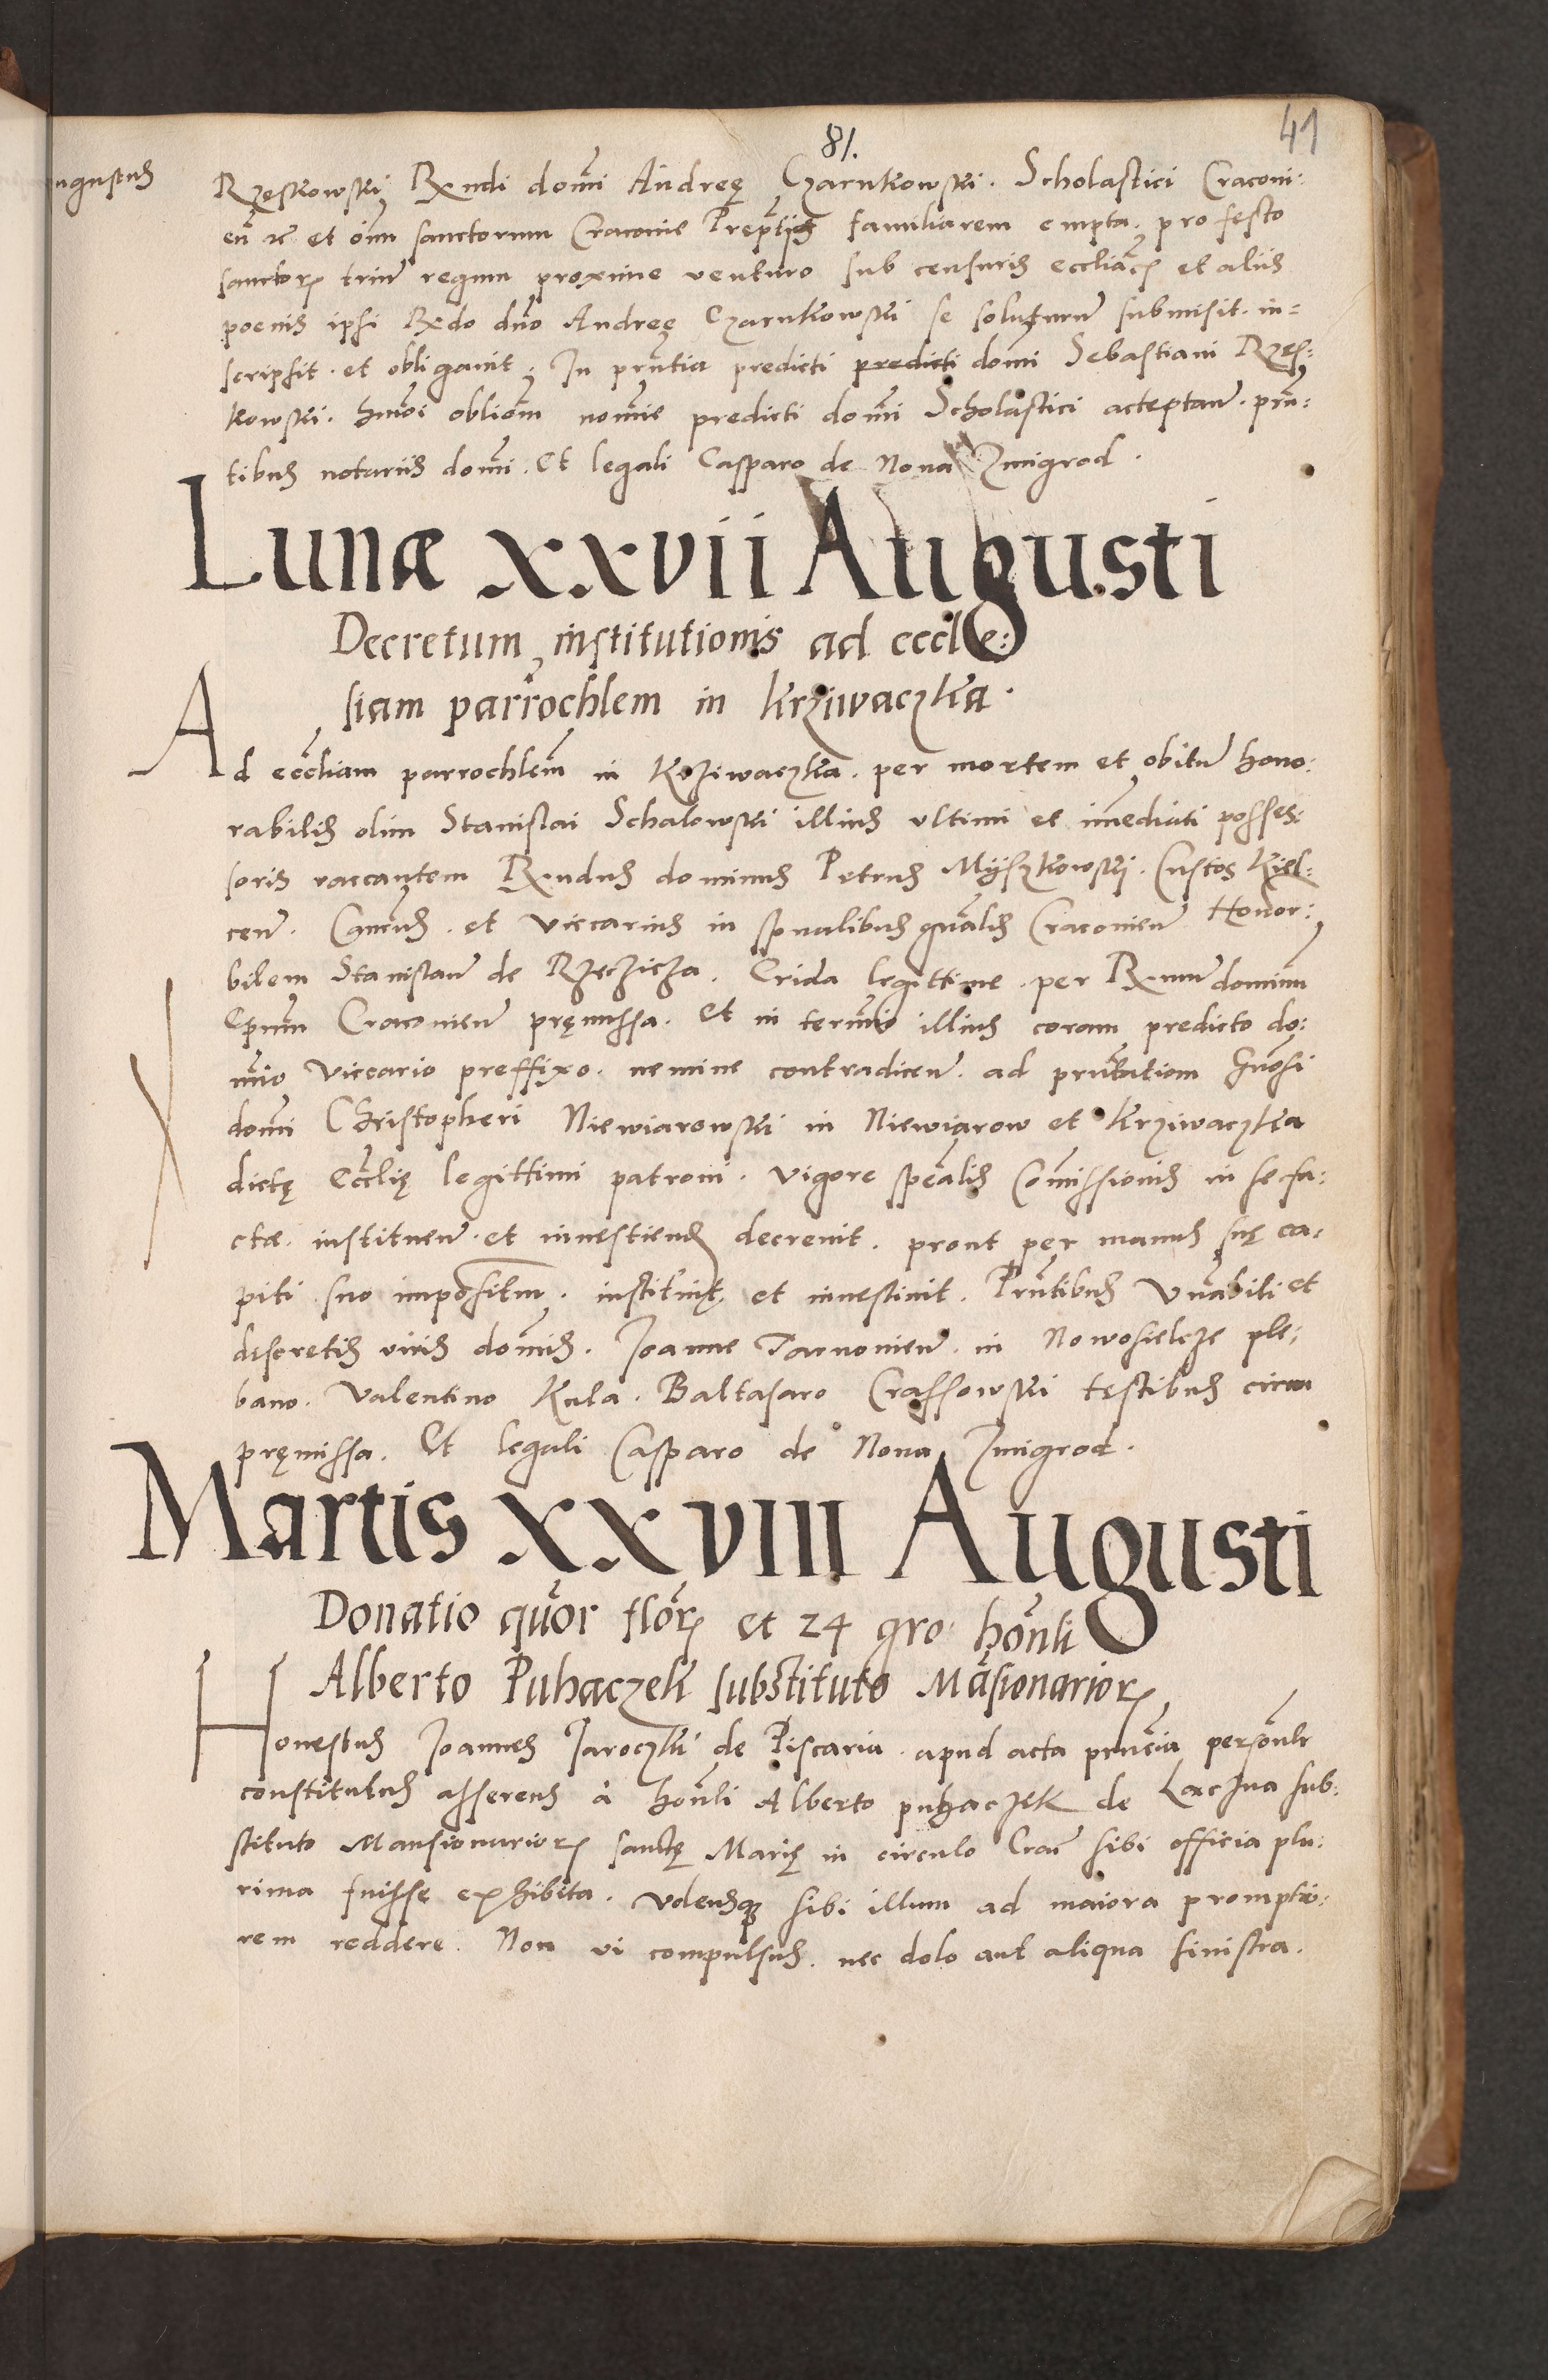 81.
41
Rzeskowski Rx̄ndi domı̄ni Andreę Czarnkowski. Scholastici Craconi:
eñ zc̄ et oīm sanctorum Craconie Prep̄tis familiarem empta. pro festo
sanctorꝝ triū regum proxime venturo sub censuris ecclīacꝭ et aliis
poenis ipsi Rx̄do dn̄o Andreę Czarnkowski se soluturū submisit. in=
scripsit. et obligauit. In pn̄tia predicti predicti domı̄ Sebastiani Rzes:
kowski. hmōi oblīom nomīe predicti domı̄ Scholastici acceptan̄. pn̄:
tibus notariis domı̄. Et legali Casparo de Noua Zmigrod.
Lunæ xxvii Augusti
Decretum institutionis ad eccle:
siam parrochlem in Krziwaczka.
Ad eccl̄iam parrochlem̄ in Krziwaczka. per mortem et obitū hono:
rabilis olim Stanislai Schalowski illius vltimi et im̄ediati posses:
soris vaccantem Rx̄ndus dominus Petrus Myszkowski. Custos Kiel=
cen̄. Can̄cus. et viccarius in sp̄ualibus gn̄alis Craconien̄ Honor:
bilem Stanislaū de Rzeczicza. Crida legittime. per Rx̄mū dominum
Ep̄um Craconien̄ pręmissa. Et in termı̄o illius coram predicto do:
mı̄o Viccario preffixo. nemine contradicen̄. ad pn̄tatiom Gn̄osi
domı̄ Christopheri Niewiarowski in Niewiarow et Krziwaczka
dictę Eccl̄ię legittimi patroni. vigore spēalis Com̄issionis in se fa:
ctæ. instituen̄. et inuestiendꝭ decreuit. prout per manus suę ca:
piti suo impositm̄. instituit et inuestiuit. Pn̄tibus Vn̄abili et
discretis viris domı̄s. Joanne Tarnouien̄. in Nowosielcze ple:
bano. Valentino Kula. Baltasaro Crassowski testibus circa
pręmissa. Et legali Casparo de Noua Zmigrod.
Martis xxviii Augusti
Donatio qūor florꝭ et 24 gro. hōnli
Alberto Puhaczek substituto Māsionariorꝝ
Honestus Joannes Jaroczki de Piscaria. apud acta pn̄cia personl̄r
constitutus asserens à hon̄li Alberto puhaczek de Laczna sub:
stituto Mansionariorꝝ sanctę Marię in circulo Crac̄ sibi officia plu:
rima fuisse exhibita. volensqꝫ sibi illum ad maiora promptio:
rem reddere. Non vi compulsus. nec dolo aut aliqua sinistra.